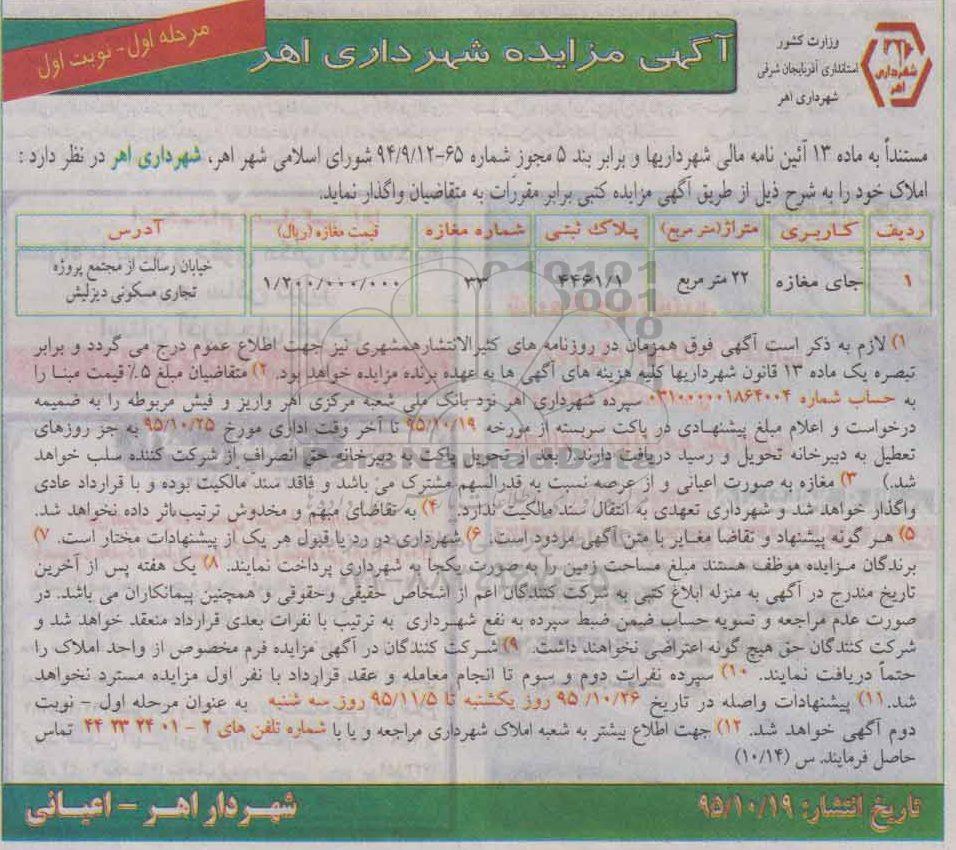 وزارت کشور
استانداری آذربایجان شرقی
شهرداری اهر
شهرداری
اهر
آگهی مزایده شهرداری اهر
مرحله اول - نوبت اول
مستنداً به ماده ۱۳ آئین نامه مالی شهرداریها و برابر بند ۵ مجوز شماره ۶۵-۹۴/۹/۱۲ شورای اسلامی شهر اهر، شهرداری اهر در نظر دارد :
املاک خود را به شرح ذیل از طریق آگهی مزایده کتبی برابر مقررات به متقاضیان واگذار نماید.
ردیف کاربری متراژ(متر مربع) پلاک ثبتی شماره مغازه قیمت مغازه (ریال) آدرس
۱ جای مغازه ۲۲ متر مربع ۴۴۶۱/۱ ۳۳ ۱/۲۰۰/۰۰۰/۰۰۰ خیابان رسالت از مجتمع پروژه
تجاری مسکونی دیزلیش
۱) لازم به ذکر است آگهی فوق همزمان در روزنامه های کثیرالانتشارهمشهری نیز جهت اطلاع عموم درج می گردد و برابر
تبصره یک ماده ۱۳ قانون شهرداریها کلیه هزینه های آگهی ها به عهده برنده مزایده خواهد بود. ۲) متقاضیان مبلغ ۵٪ قیمت مبنا را
به حساب شماره ۰۳۱۰۰۰۰۰۱۸۶۴۰۰۴ سپرده شهرداری اهر نزد بانک ملی شعبه مرکزی اهر واریز و فیش مربوطه را به ضمیمه
درخواست و اعلام مبلغ پیشنهادی در پاکت سربسته از مورخه ۹۵/۱۰/۱۹ تا آخر وقت اداری مورخ ۹۵/۱۰/۲۵ به جز روزهای
تعطیل به دبیرخانه تحویل و رسید دریافت دارند.( بعد از تحویل پاکت به دبیرخانه حق انصراف از شرکت کننده سلب خواهد
شد.) ۳) مغازه به صورت اعیانی و از عرصه نسبت به قدرالسهم مشترک می باشد و فاقد سند مالکیت بوده و با قرارداد عادی
واگذار خواهد شد و شهرداری تعهدی به انتقال سند مالکیت ندارد. ۴) به تقاضای مبهم و مخدوش ترتیب اثر داده نخواهد شد.
۵) هر گونه پیشنهاد و تقاضا مغایر با متن آگهی مردود است. ۶) شهرداری در رد یا قبول هر یک از پیشنهادات مختار است. ۷)
برندگان مزایده موظف هستند مبلغ مساحت زمین را به صورت یکجا به شهرداری پرداخت نمایند. ۸) یک هفته پس از آخرین
تاریخ مندرج در آگهی به منزله ابلاغ کتبی به شرکت کنندگان اعم از اشخاص حقیقی وحقوقی و همچنین پیمانکاران می باشد. در
صورت عدم مراجعه و تسویه حساب ضمن ضبط سپرده به نفع شهرداری به ترتیب با نفرات بعدی قرارداد منعقد خواهد شد و
شرکت کنندگان حق هیچ گونه اعتراضی نخواهند داشت. ۹) شرکت کنندگان در آگهی مزایده فرم مخصوص از واحد املاک را
حتماً دریافت نمایند. ۱۰) سپرده نفرات دوم و سوم تا انجام معامله و عقد قرارداد با نفر اول مزایده مسترد نخواهد
شد.۱۱) پیشنهادات واصله در تاریخ ۹۵/۱۰/۲۶ روز یکشنبه تا ۹۵/۱۱/۵ روز سه شنبه به عنوان مرحله اول - نوبت
دوم آگهی خواهد شد. ۱۲) جهت اطلاع بیشتر به شعبه املاک شهرداری مراجعه و یا با شماره تلفن های ۲ - ۰۱ ۲۴ ۲۳ ۴۴ تماس
حاصل فرمایند. س (۱۰/۱۴)
تاریخ انتشار: ۹۵/۱۰/۱۹
شهردار اهر - اعیانی
ParsNamadData